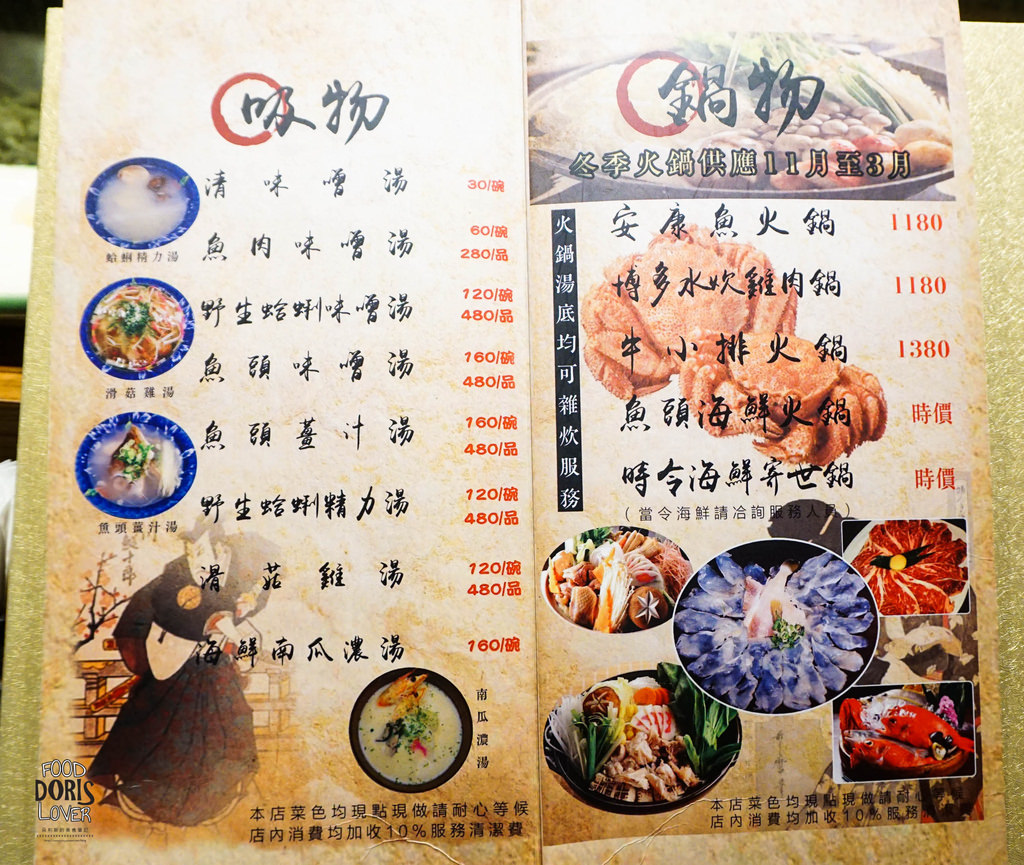 吸物
清味噌湯 30/碗
魚肉味噌湯 60/碗 280/品
野生蛤蜊味噌湯 120/碗 480/品
魚頭味噌湯 160/碗 480/品
魚頭薑汁湯 160/碗 480/品
野生蛤蜊精力湯 120/碗 480/品
滑菇雞湯 120/碗 480/品
海鮮南瓜濃湯 160/碗
蛤蜊精力湯
滑菇雞湯
魚頭薑汁湯
南瓜濃湯
本店菜色均現點現做請耐心等候
店內消費均加收10%服務清潔費
FOOD
DORIS
LOVER
鍋物
冬季火鍋供應11月至3月
火鍋湯底均可雜炊服務
安康魚火鍋 1180
博多水炊雞肉鍋 1180
牛小排火鍋 1380
魚頭海鮮火鍋 時價
時令海鮮寄世鍋 時價
(當令海鮮請洽詢服務人員)
本店菜色均現點現做請耐心等候
店內消費均加收10%服務